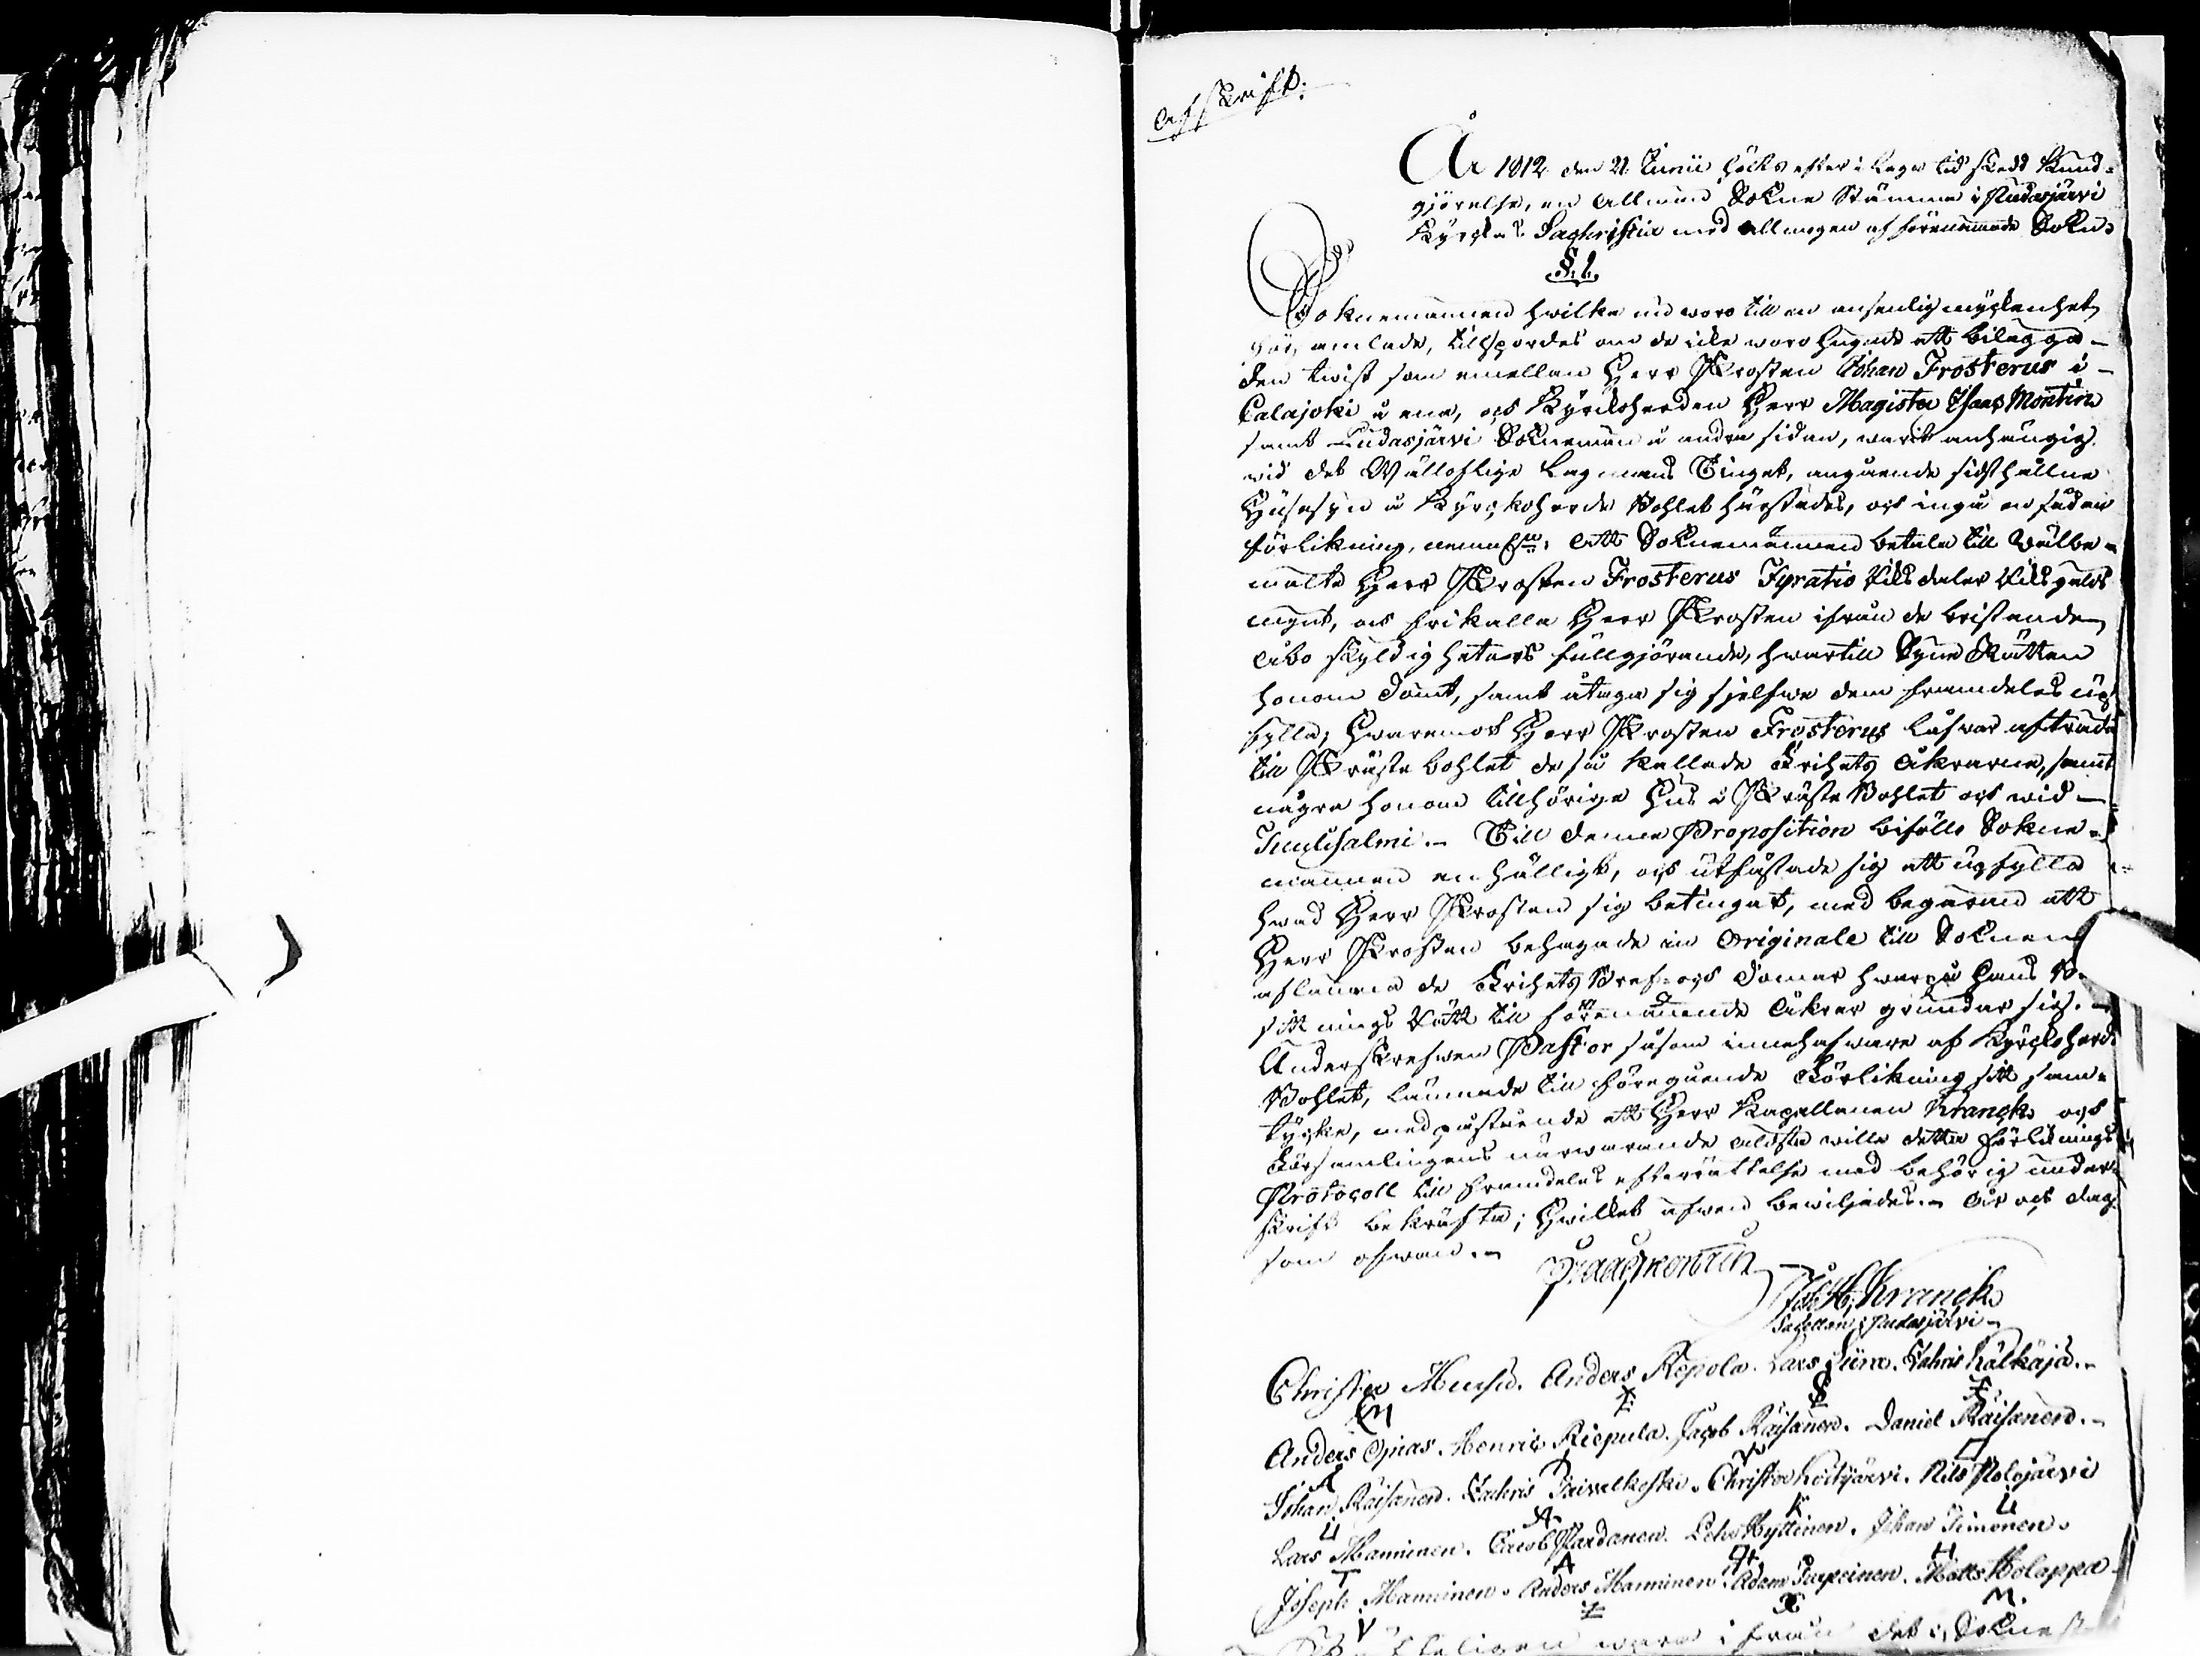 Afskrift.
År 1812 den 21 Junii hölts efter i Laga tid skedd Kund-
gjörelse, en Allmän Sokne Stämma i Pudasjärvi
Kyrckas Sachristia med Allmogen af förenämnde Sokn.
§. 1.
Soknemännen hwilka nu woro till en ansenlig myckenhet
församlade, tillspordes om de icke woro hugade att bilägga
den twist som emellan Herr Prosten Johan Frosterus i
Calajoki å ena, och Kyrckoherden Herr Magister Isaac Montin
samt Pudasjärvi Soknemän å andra sidan, warit anhängig
wid det Wällofliga Lagmans Tinget, angående sidsthållne
Husesyn å Kyrckoherde Bohlet härstädes, och ingå en sådan
förlikning, nemlig: Att Soknemännen betala till Wälbe-
mälte Herr Prosten Frosterus Fyratio Riksdaler Riksgälds
mynt, och frikalla Herr Prosten ifrån de bristande
Åbo skyldigheters fullgjörande, hwartill Syne Rätten
honom dömt, samt åtaga sig sjelfwe dem framdeles up-
fylla; Hwaremot Herr Prosten Frosterus låfwar afträda
till Prästebohlet de så kallade Frihets Åkrarne, samt
några honom tillhörige Hus å Präste Bohlet och wid
Jungsalmi. Till denna Proposition biföllo Sokne-
männen enhälligt, och utfästade sig att upfylla
hwad Herr Prosten sig betingat, med begäran att
Herr Prosten behagade in Originale till Soknen
aflämna de Frihets Bref och Domar hwarpå hans
sittnings Rätt till förenämnde Åkrar grundar sig.
Underskrefwen Pastor såsom innehafware af Kyrckoherde
Bohlet, lämnade till föregående Förlikning sitt sam-
tycke, med påstående att Herr Kapellanen Kranck och
Församlingens närwarande äldsta wille detta Förliknings
Protocoll till framdeles efterrättelse med behörig under-
skrift bekräfta; Hwilket äfwen bewiljades. År och dag
som ofwan.
Isaac Montin
Joh. H. Kranck
Capellan i Pudasjärvi
Christer Anders Repola. Lars Zachris Kälkäjä.
Anders Opias. Henric Riepula. Jacob Räisänen. Daniel Räisänen.
Johan Räisänen. Zachris Taivalkoski. Christer Nils Polojärvi
Lars Manninen. Jacob Pardanen. Pehr Hyttinen. Johan Timonen.
Joseph Manninen. Anders Manninen. Adam Turpeinen. Matts Holappa
wara ifrån det Sokne